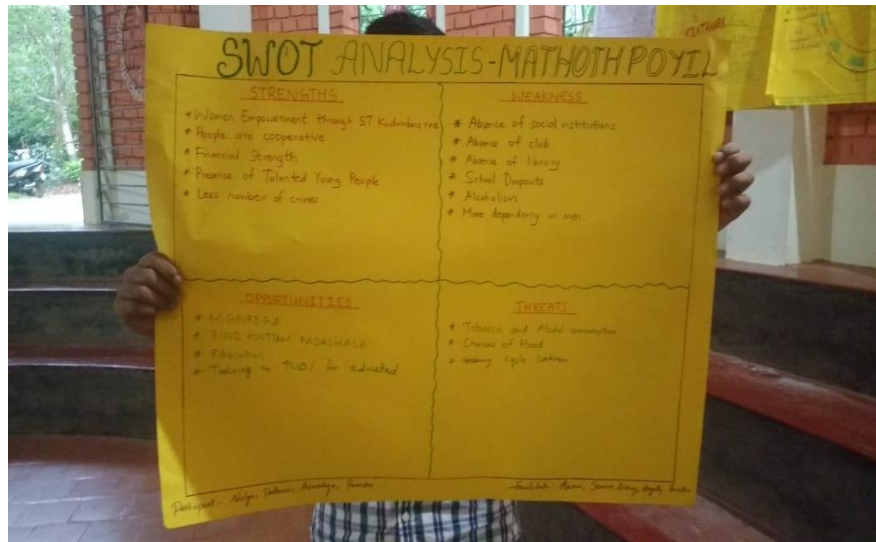 SWOT ANALYSIS-MATHOTH POYIL
STRENGTHS
* Women Empowerment through ST Kudumbasree
* People are cooperative
* Financial Strength
* Presence of Talented Young People
* Less number of crimes
WEAKNESS
* Absence of social institutions
* Absence of club
* Absence of library
* School Dropouts
* Alcoholism
* More dependency on men
OPPORTUNITIES
* MGNREGA
* TUDI PADASHALA
* Education
* Training in TUDI for educated
THREATS
* Tobacco and Alcohol consumption
* Chances of Flood
* cycle